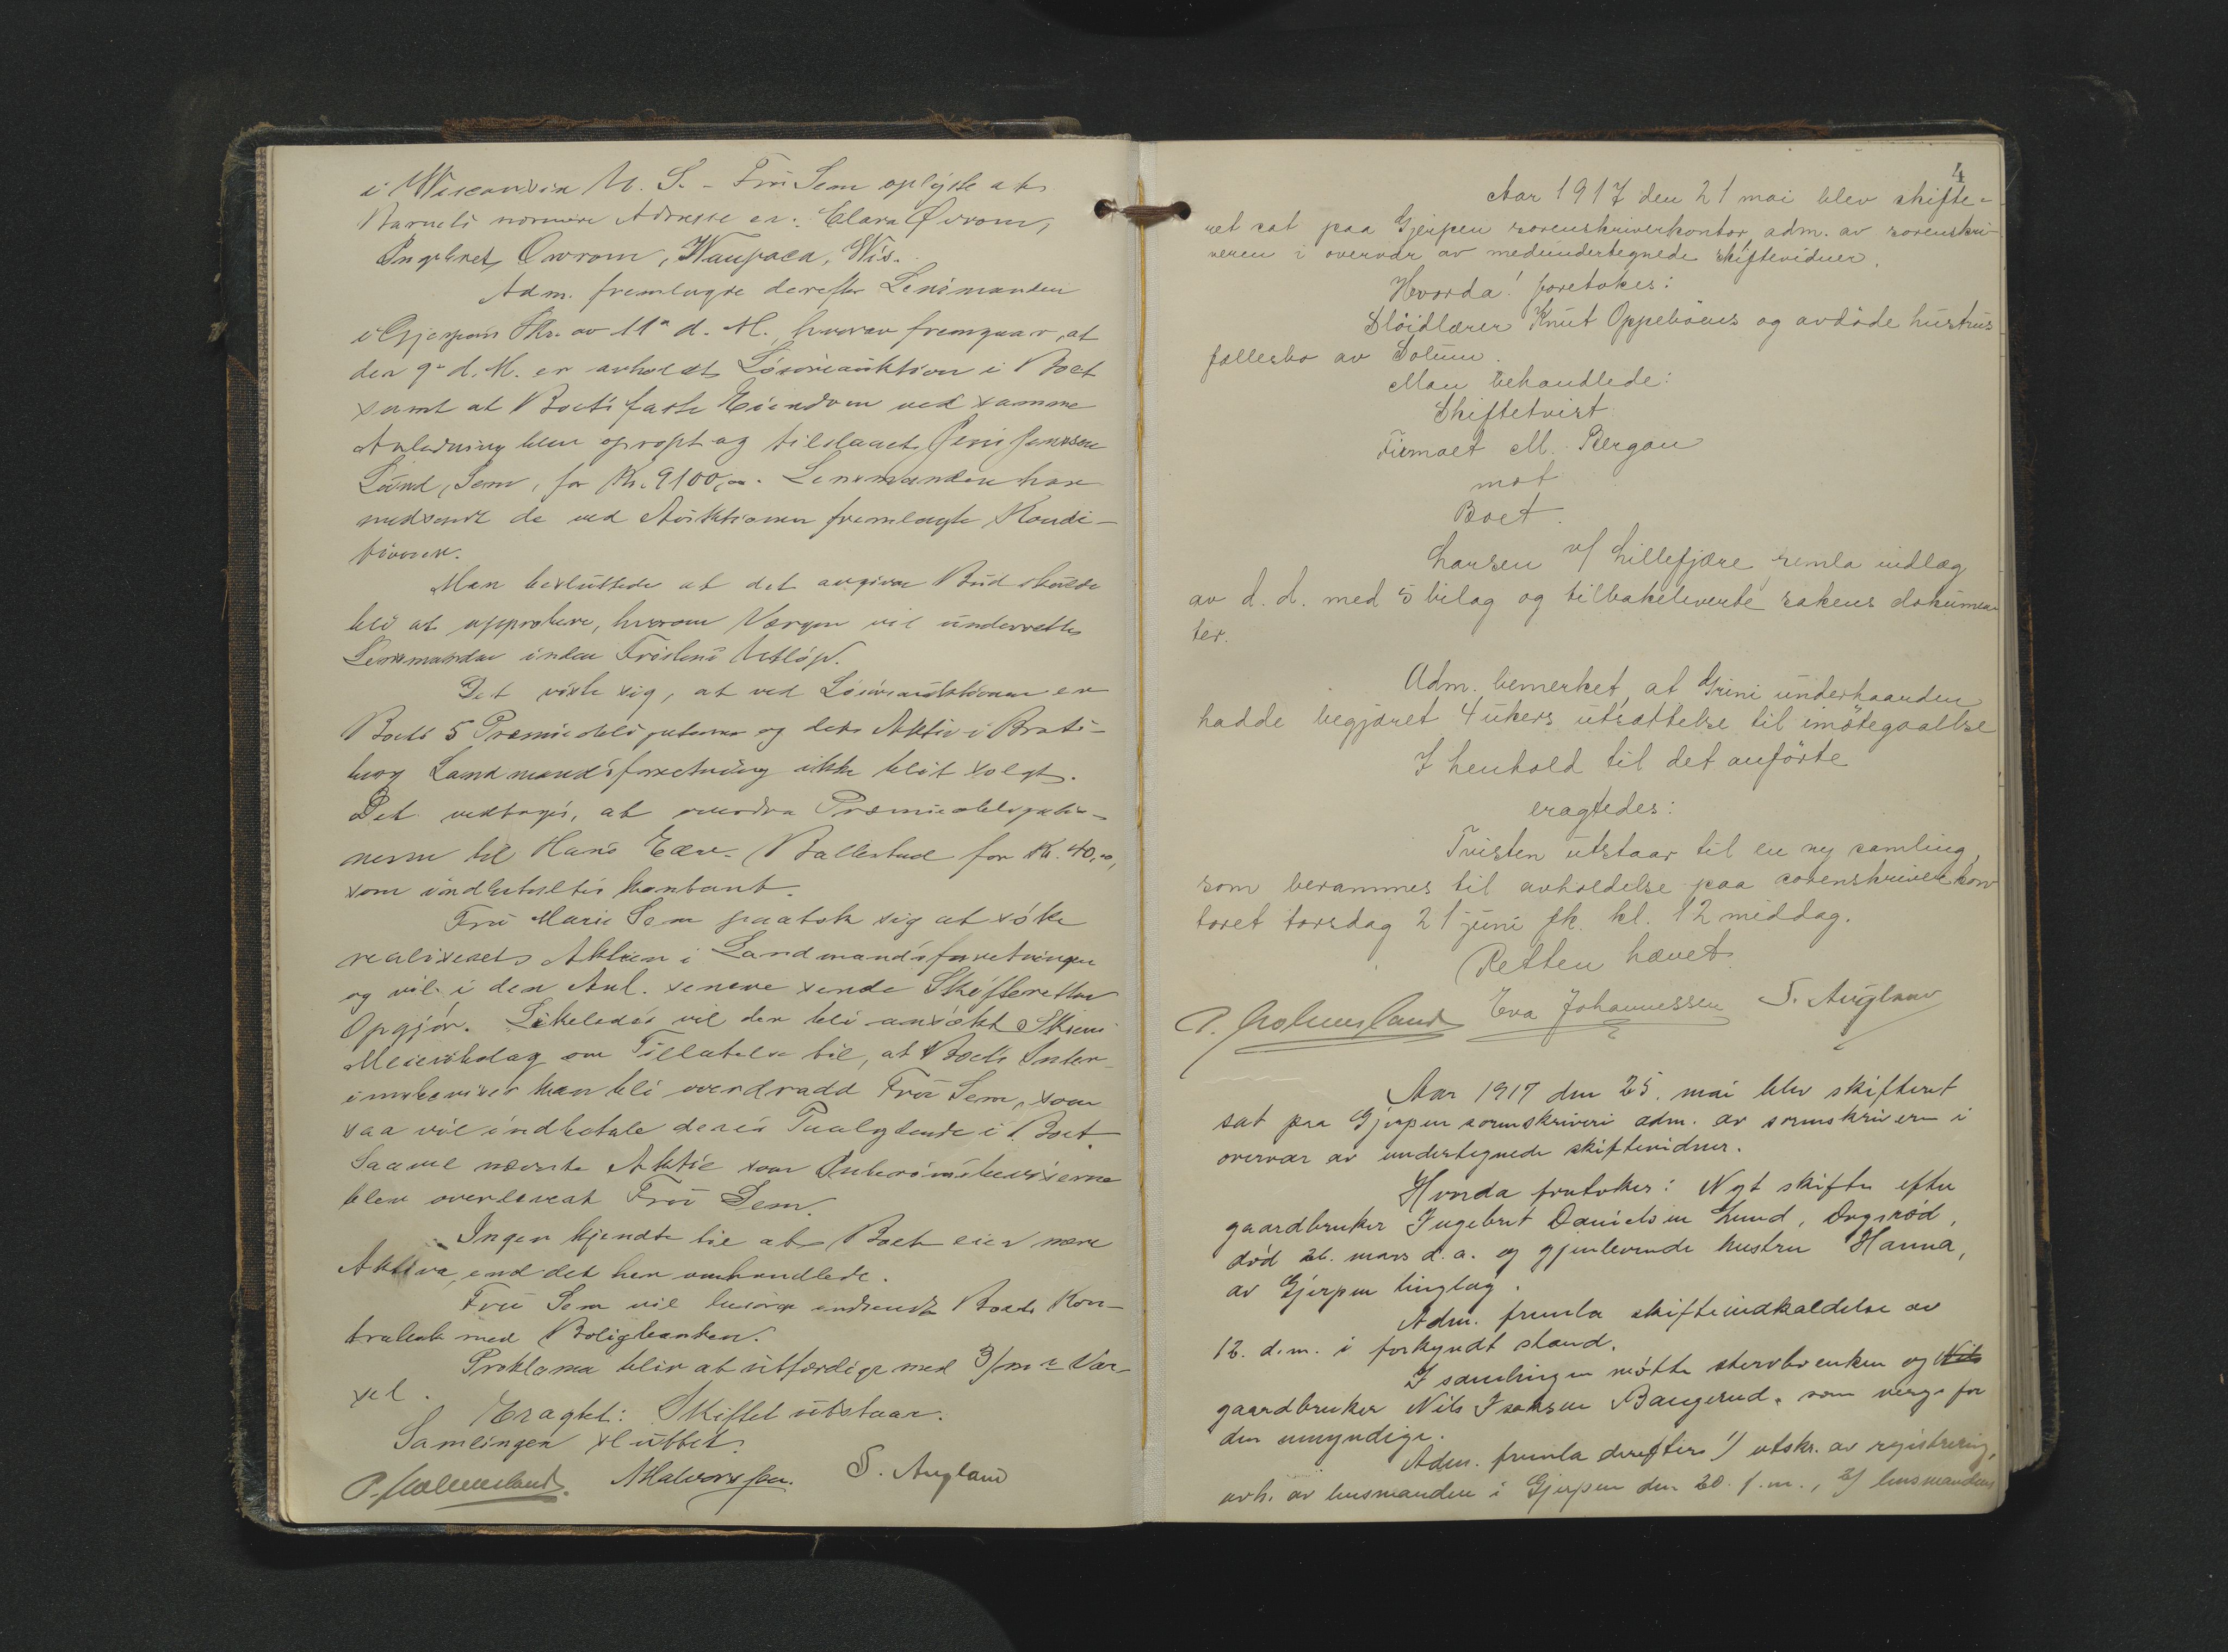 i Wisconsin U. S. - Frú Sem oplyste at
Barnets nærmere Adresse er: Clara Ovrom,
Ingebret Ovrom, Waupaca, Wis.
Adm. fremlagde derefter Lensmanden
i Gjerpens Skr. av 11te d. M. hvorav fremgaar, at
den 9de d. M. er avholdt Løsøreauktion i Boet
samt at Boets faste Eiendom ved samme
Anledning blev opropt og tilslaaet Jens Jenssen
Lund, Sem, for Kr. 9100,00. Lensmanden har
medsendt de ved Auktionen fremlagte Kondi-
tioner.
Man besluttede at det angivne Bud skulde
bli at approbere, hvorom Vergen vil underrette
Lensmanden inden Fristens Utløp.
Det viste sig, at ved Løsøreauktionen er
Boets 5 Præmieobligationer og dets Aktie i Brats-
berg Landmandsforretning ikke blit solgt.
Det vedtages, at overdra Præmieobligatio-
nerne til Hans Edv. Ballestad for Kr. 40,00,
som indbetaltes kontant.
Frú Marie Sem paatok sig at søke
realiseret Aktien i Landmandsforretningen
og vil i den Anl. senere sende Skifteretten
Opgjør. Likeledes vil der bli ansøkt Skiens
Meieribolag om Tillatelse til, at Boets Inter-
imsbeviser kan bli overdradd Frú Sem, som
saa vil indbetale deres Paalydende i Boet.
Saavel nævnte Aktie som Interimsbeviserne
blev overlevert Frú Sem.
Ingen kjendte til at Boet eier mere
Aktiva, end det her omhandlede.
Frú Sem vil besørge indsendt Boets Kon-
trabok med Boligbanken.
Proklama blir at utfærdige med 3/m's Var-
sel.
Eragtet: Skiftet utstaar.
Samlingen sluttet.
P. Holmesland. AHalvorssen. S. Augland
4
Aar 1917 den 21 mai blev skifte-
ret sat paa Gjerpen sorenskriverkontor, adm. av sorenskri-
veren i overvær av medundertegnede skiftevidner.
Hvorda! foretokes:
Sløidlærer Knut Oppebøens og avdøde hustrus
fællesbo av Solum.
Man behandlede:
Skiftetvist
Firmaet M. Bergan
mot
Boet.
Larsen v/ Lillefjære remla indlæg
av d. d. med 5 bilag og tilbakeleverte sakens dokumen-
ter.
Adm. bemerket, at Grini underhaanden
hadde begjæret 4 ukers utsættelse til imøtegaaelse
I henhold til det anførte
eragtedes:
Tvisten utstaar til en ny samling,
som berammes til avholdelse paa sorenskriverkon
toret torsdag 21 juni fk. kl. 12 middag.
Retten hævet
P. Holmesland Eva Johannessen S. Augland
Aar 1917 den 25. mai blev skifteret
sat paa Gjerpen sorenskriveri adm. av sorenskriveren i
overvær av undertegnede skiftevidner.
Hvorda foretokes: Nyt skifte efter
gaardbruker Ingebret Danielsen Lund,
død 26. mars d. a. og gjenlevende hustru Hanna,
av Gjerpen tinglag.
Adm. fremla skifteindkaldelse av
12. d. m. i forkyndt stand.
I samlingen møtte stervboenken og Nils
gaardbruker Nils Isaksen Baugerud, som verge for
den umyndige.
Adm. fremla derefter: 1/ utskr. av registrering,
avh. av lensmanden i Gjerpen den 20. f. m., 2/ lensmandens